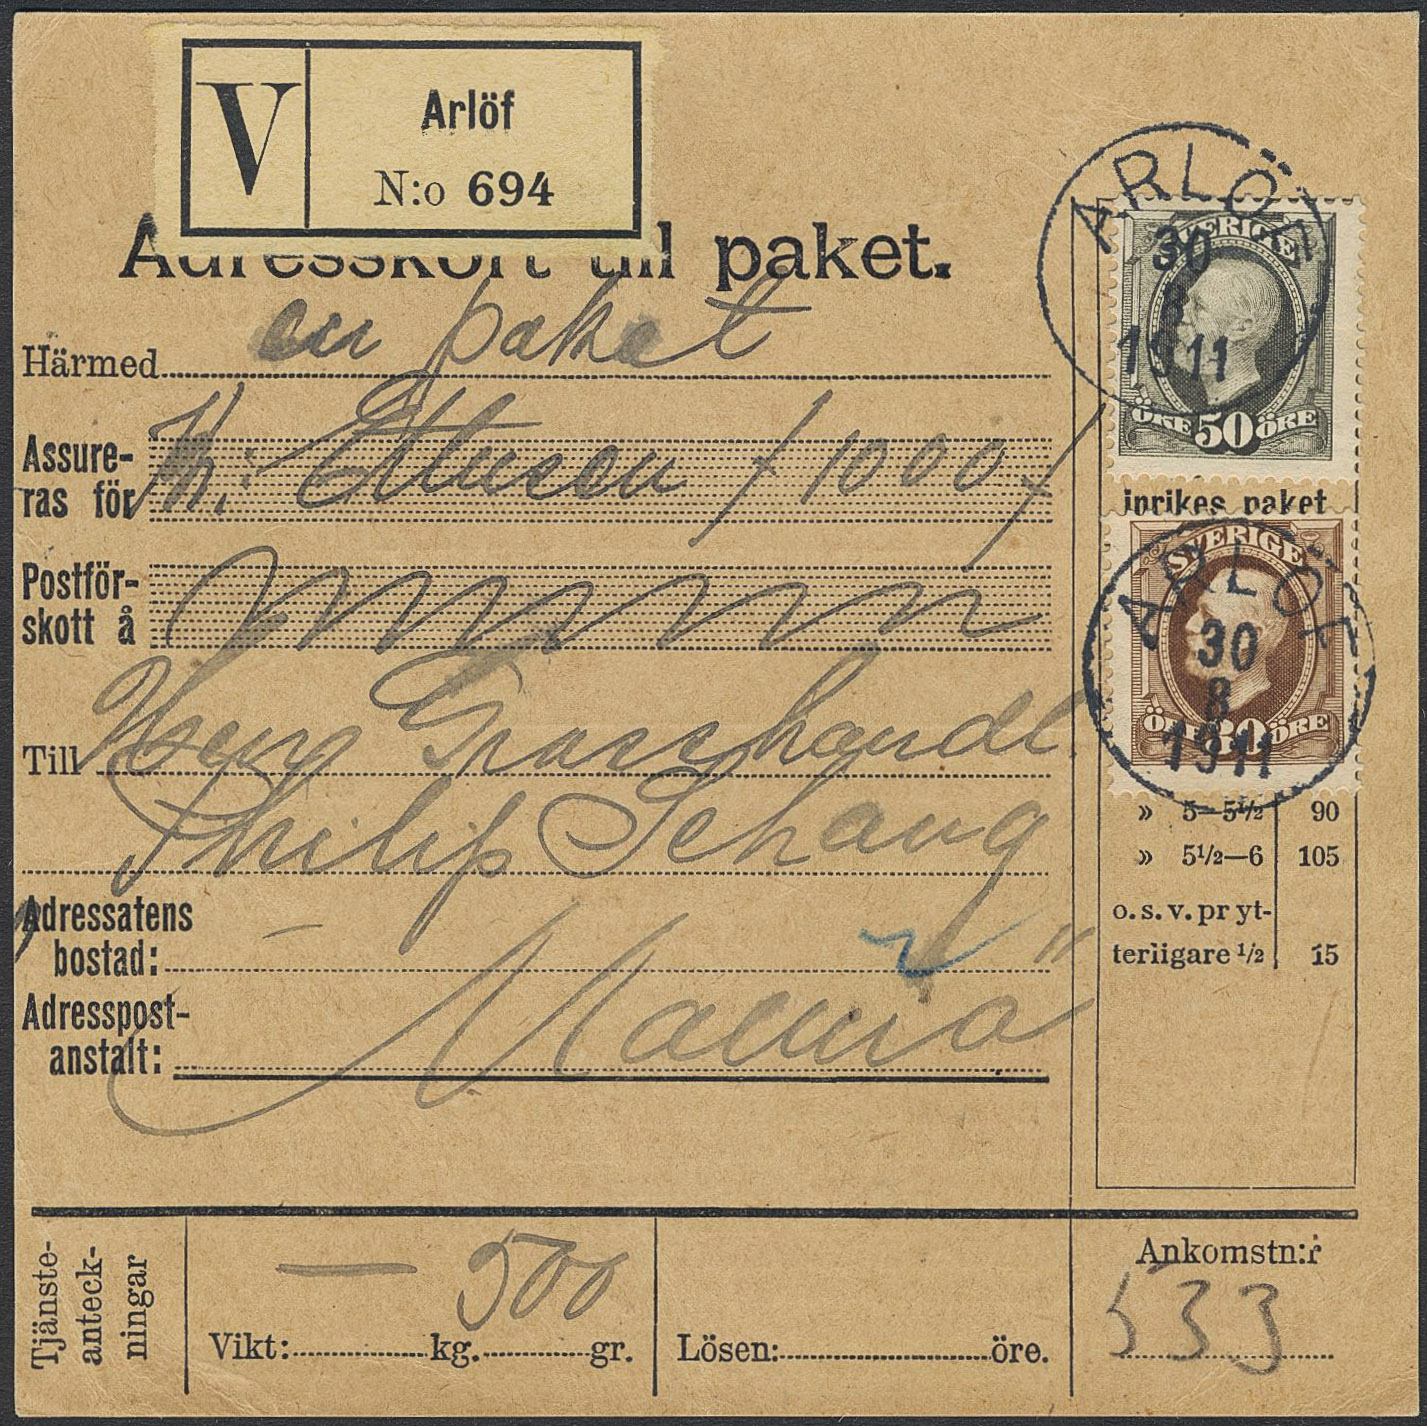 V
Arlöf
N:o 694
Adresskort till paket.
Härmed en paket
Assure-
ras för Kr: Ettusen /1000/
Postför-
skott å
Till Herr Grosshandl.
Philip Schaug
Adressatens
bostad:
Adresspost-
anstalt: Malmö
ARLÖF
30
8
1911
SVERIGE
ÖRE 50 ÖRE
inrikes paket
ARLÖF
30
8
1911
SVERIGE
ÖRE 30 ÖRE
» 5—5½ 90
» 5½—6 105
o. s. v. pr yt-
terligare ½ 15
Tjänste-
anteck-
ningar
Vikt: — kg. 500 gr.
Lösen: öre.
Ankomstn:r
533